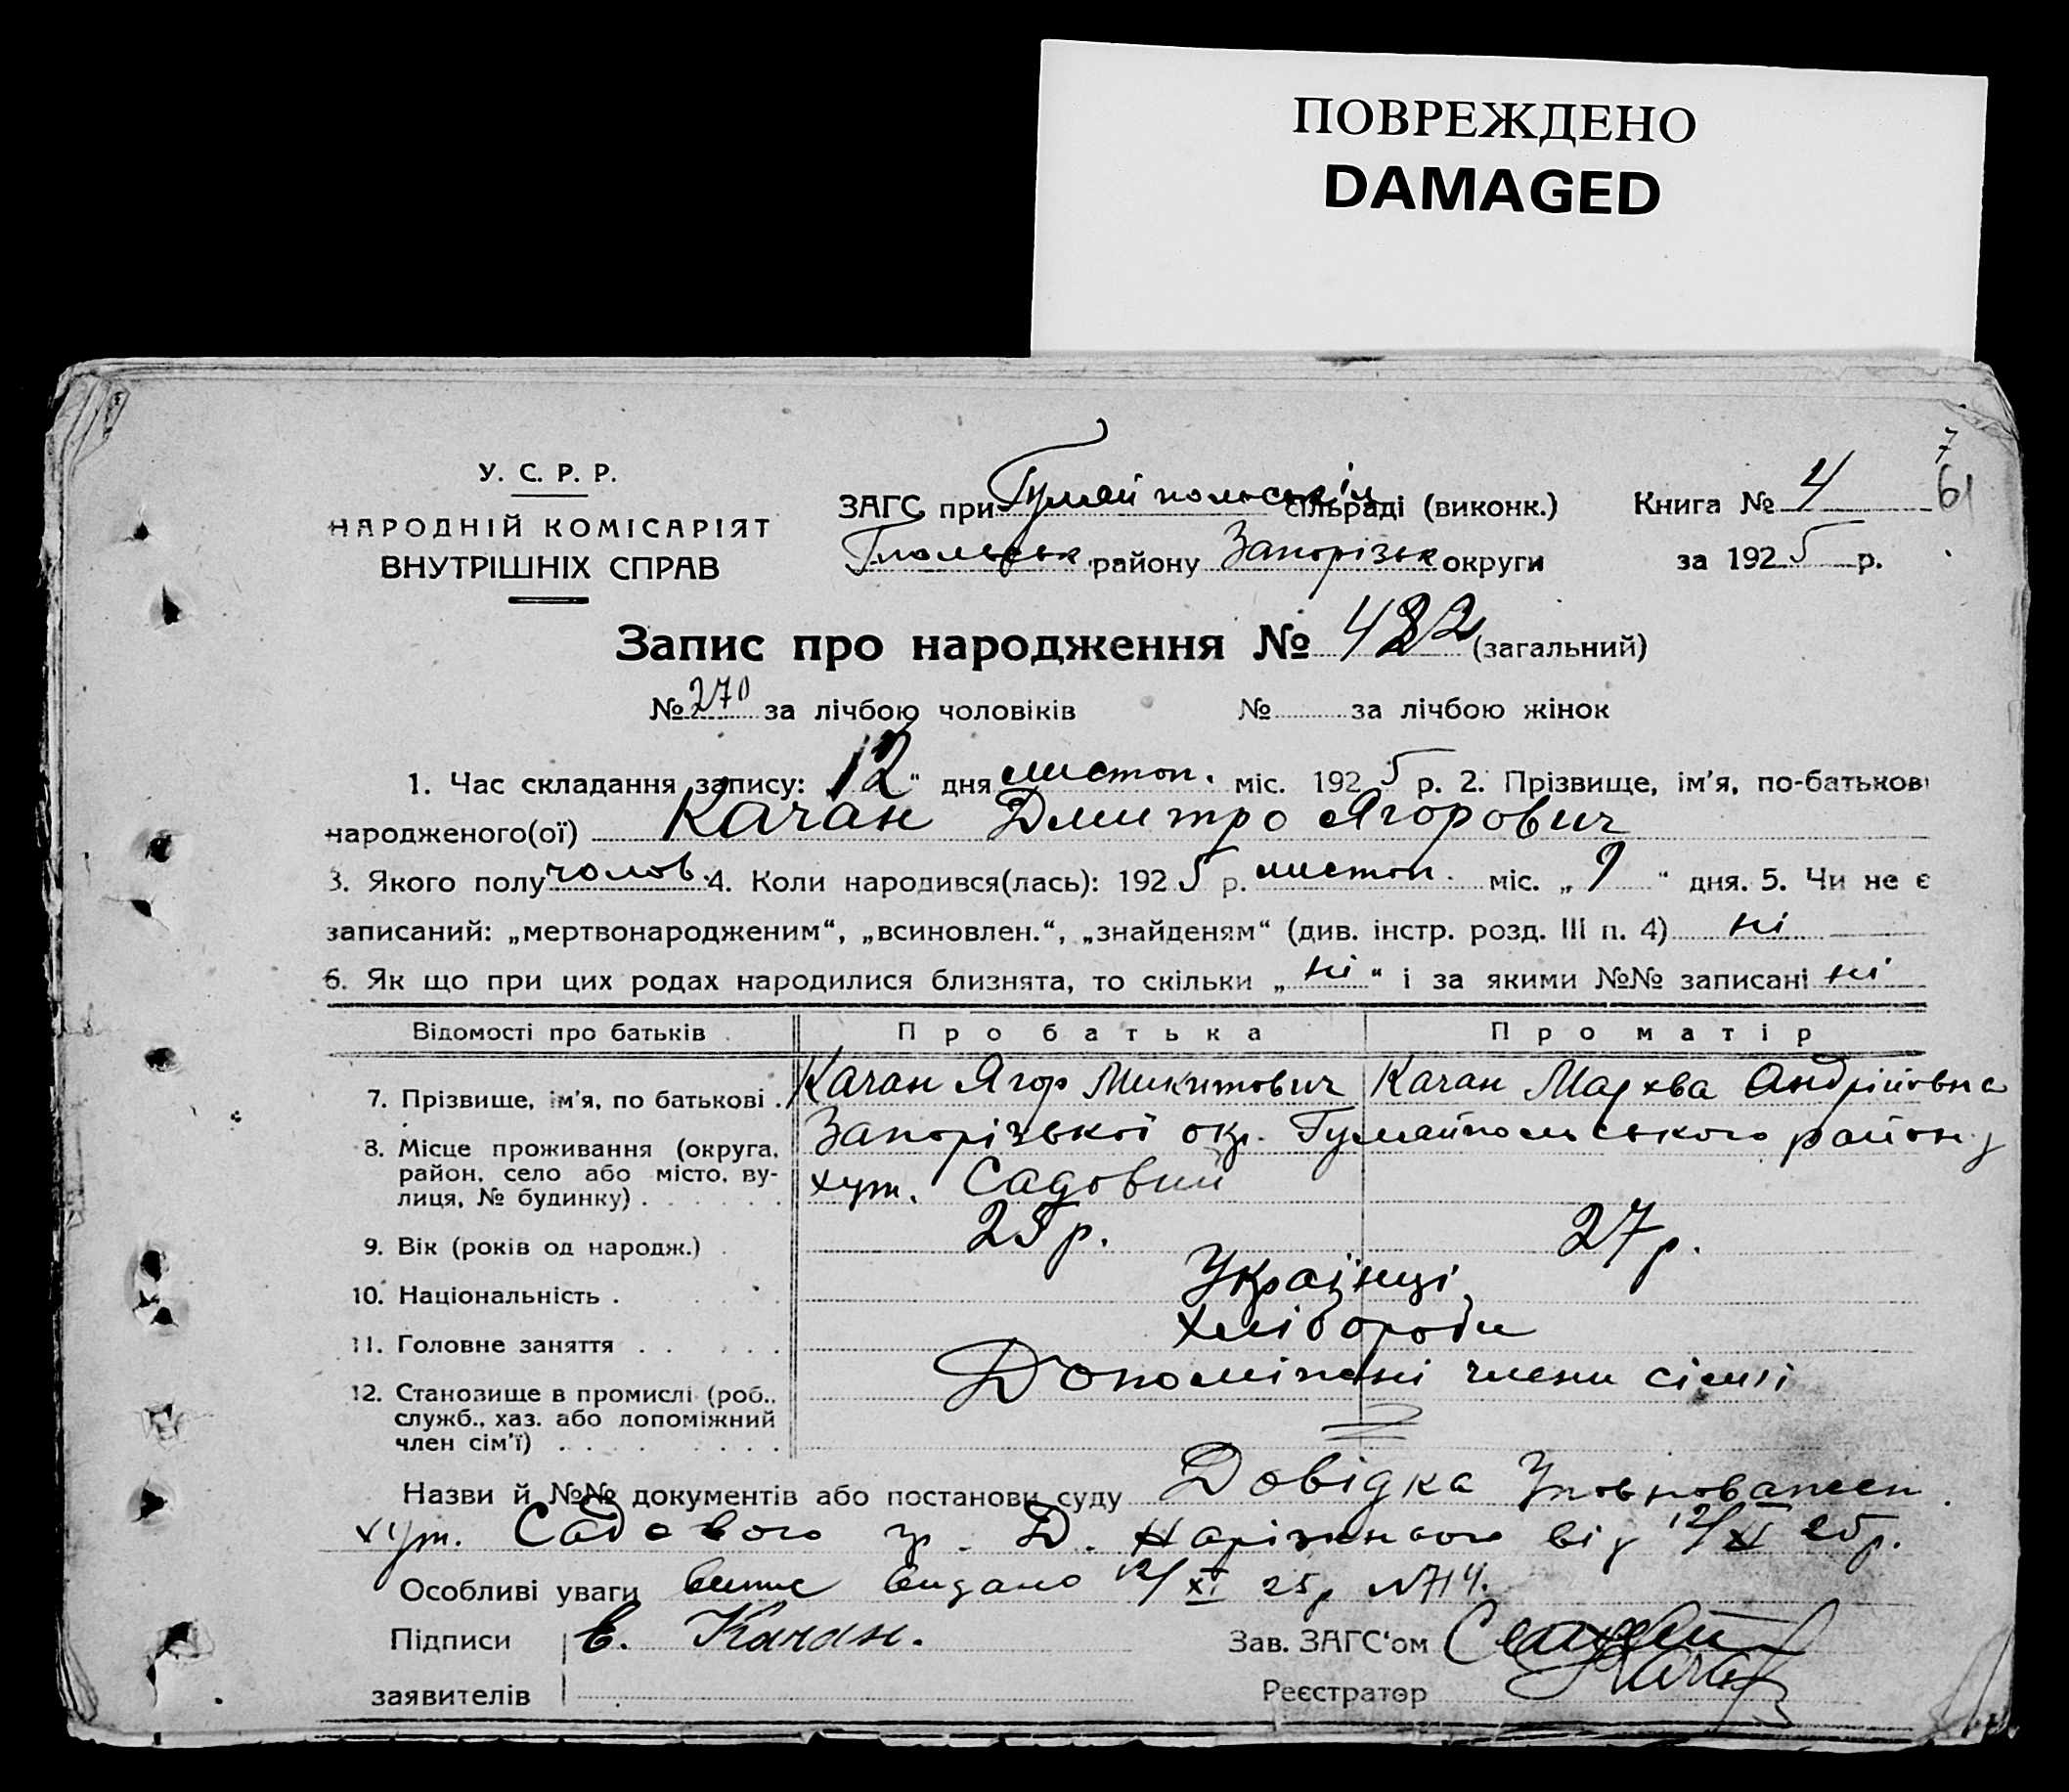 ПОВРЕЖДЕНО
DAMAGED
У. С. Р. Р.
НАРОДНІЙ КОМІСАРІЯТ
ВНУТРІШНІХ СПРАВ
ЗАГС при Гуляй польській сільраді (виконк.)
Книга № 4
7
61
Гпольськ. району Запорізьк округи
за 1925 р.
Запис про народження № 482 (загальний)
№ 270 за лічбою чоловіків № за лічбою жінок
1. Час складання запису: 12 " дня листоп. міс. 1925 р. 2. Прізвище, ім'я, по-батькові
народженого(ої) Качан Дмитро Ягорович
3. Якого полу чолов. 4. Коли народився(лась): 1925 р. листоп. міс. „ 9 " дня. 5. Чи не є
записаний: „мертвонародженим“, „всиновлен.“, „знайденям“ (див. інстр. розд. III п. 4) ні
6. Як що при цих родах народилися близнята, то скільки „ ні “ і за якими №№ записані ні
Відомості про батьків Про батька Про матір
7. Прізвище, ім'я, по батькові . Качан Ягор Микитович Качан Андрійовна
8. Місце проживання (округа, район, село або місто, вулиця, № будинку) . Запорізької окр. Гуляйпольського району
хут. Садовий
9. Вік (років од народж.) . 25 р. 27 р.
10. Національність . Українці
11. Головне заняття . . Хлібороби
12. Становище в промислі (роб., служб., хаз. або допоміжний член сім'ї) . . Допоміжні члени сімії
Назви й №№ документів або постанови суду Довідка Уповноважен.
хут. Садового гр. Д. Нарізнього від 12/XI 25 р.
Особливі уваги випис видано 12/XI 25 р №714.
Підписи Е. Качан.
Зав. ЗАГС'ом
заявителів
Реєстратор